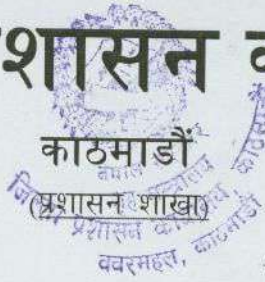 शासन
काठमाडौं
(प्रशासन शाखा)
नेपाल
जिल्ला प्रशासन कार्यालय
बबरमहल, काठमाडौं